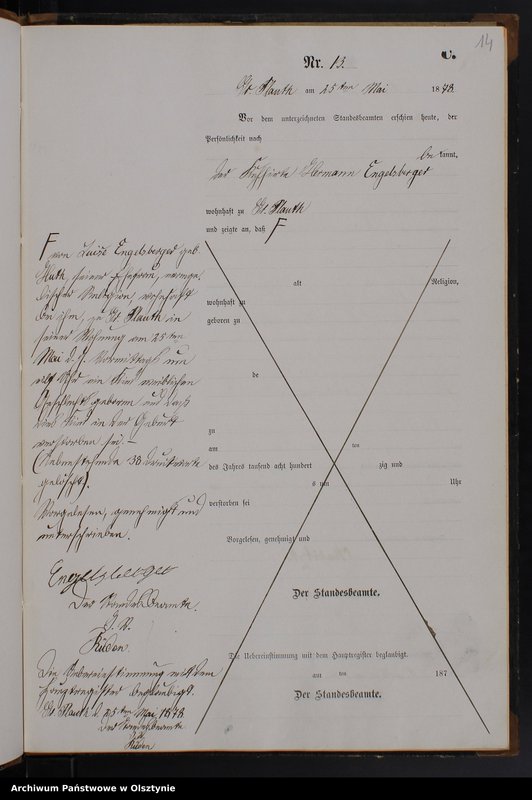 14
C.
Nr. 13.
Gr. Plauth am 25ten Mai 1878.
Vor dem unterzeichneten Standesbeamten erschien heute, der
Persönlichkeit nach
bekannt,
der Hermann Engelsberger
wohnhaft zu Gr. Plauth
und zeigte an, daß F
F von Luise Engelsberger geb.
Huth, seiner Ehefrau, evange-
lischer Religion, wohnhaft
bei ihm, zu Gr. Plauth in
seiner Wohnung am 25ten
Mai d. J. Vormittags um
Uhr ein Kind weiblichen
Geschlechts geboren und daß
das Kind in der Geburt
verstorben sei. –
(Nebenstehende 38 Druckworte
gelöscht).
Vorgelesen, genehmigt und
unterschrieben.
Engelsberger
Der Standesbeamte.
Rüden.
Die Uebereinstimmung mit dem
Hauptregister beglaubigt.
Gr. Plauth d. 25ten Mai 1878.
Der Standesbeamte
Rüden
alt Religion,
wohnhaft zu
geboren zu
de
zu
am ten
des Jahres tausend acht hundert zig und
s um Uhr
verstorben sei
Vorgelesen, genehmigt und
Der Standesbeamte.
Die Uebereinstimmung mit dem Hauptregister beglaubigt.
am ten 187
Der Standesbeamte.
Archiwum Państwowe w Olsztynie